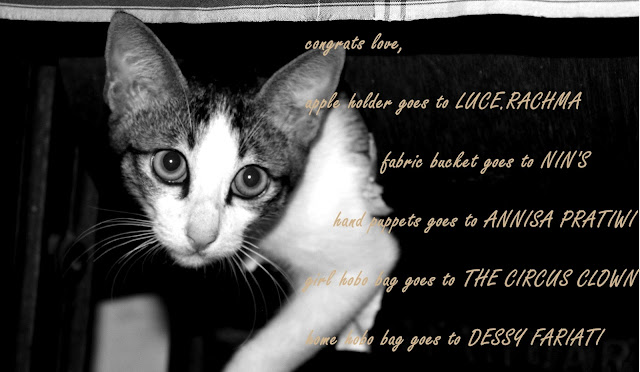 congrats love,
apple holder goes to LUCE.RACHMA
fabric bucket goes to NIN'S
hand puppets goes to ANNISA PRATIWI
girl hobo bag goes to THE CIRCUS CLOWN
home hobo bag goes to DESSY FARIATI